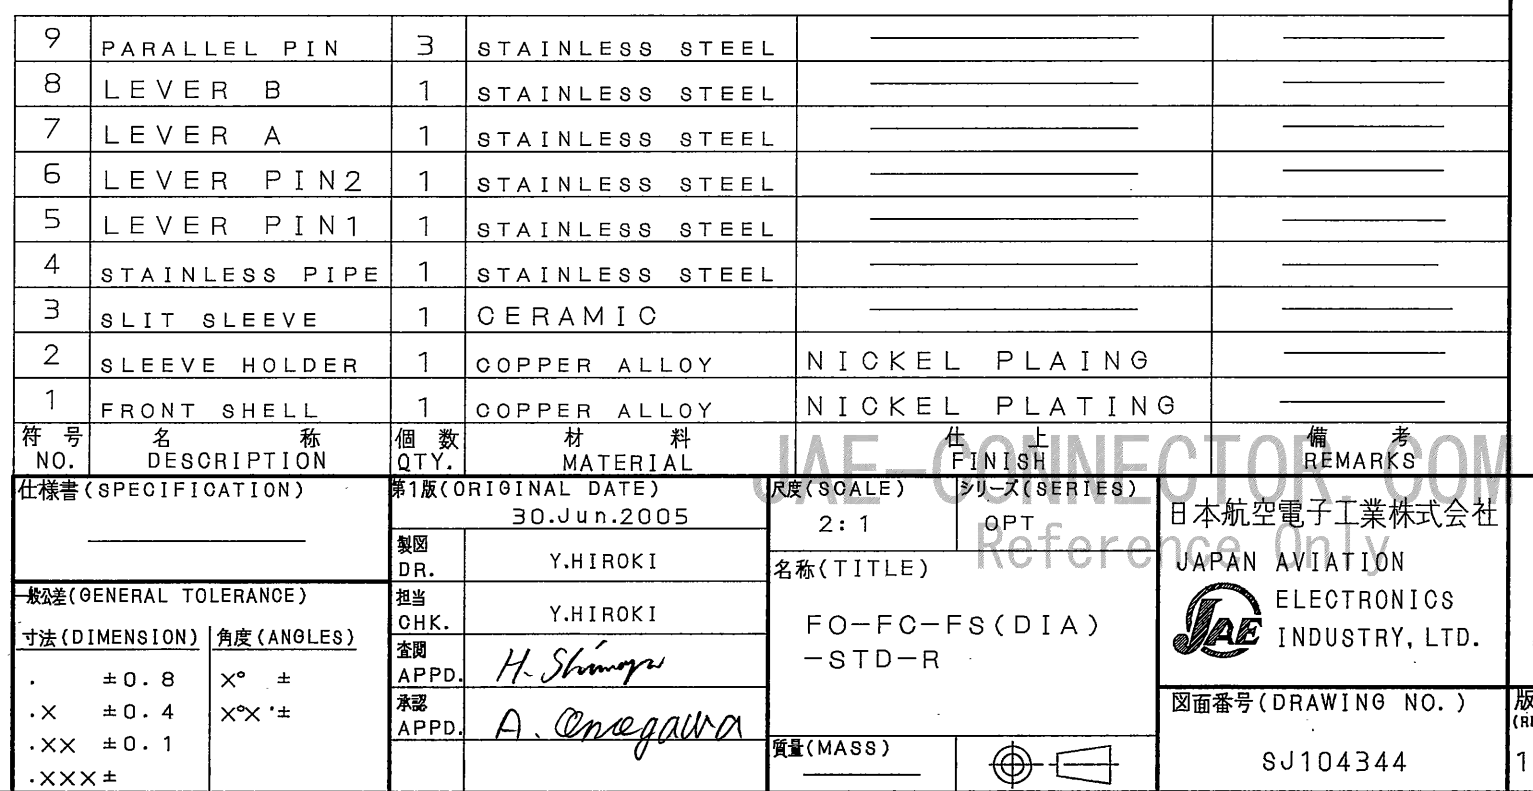 9 PARALLEL PIN 3 STAINLESS STEEL
8 LEVER B 1 STAINLESS STEEL
7 LEVER A 1 STAINLESS STEEL
6 LEVER PIN2 1 STAINLESS STEEL
5 LEVER PIN1 1 STAINLESS STEEL
4 STAINLESS PIPE 1 STAINLESS STEEL
3 SLIT SLEEVE 1 CERAMIC
2 SLEEVE HOLDER 1 COPPER ALLOY NICKEL PLAING
1 FRONT SHELL 1 COPPER ALLOY NICKEL PLATING
符号 名称 個数 材料 仕上 備考
NO. DESCRIPTION QTY. MATERIAL FINISH REMARKS
JAE-CONNECTOR.COM
Reference Only
仕様書(SPECIFICATION)
一般公差(GENERAL TOLERANCE)
寸法(DIMENSION) 角度(ANGLES)
. ±0.8 X° ±
.X ±0.4 X°X'±
.XX ±0.1
.XXX±
第1版(ORIGINAL DATE)
30.Jun.2005
製図
DR. Y.HIROKI
担当
CHK. Y.HIROKI
査閲
APPD.
承認
APPD.
尺度(SCALE)
2:1
シリーズ(SERIES)
OPT
名称(TITLE)
FO-FC-FS(DIA)
-STD-R
質量(MASS)
日本航空電子工業株式会社
JAPAN AVIATION
ELECTRONICS
INDUSTRY, LTD.
JAE
図面番号(DRAWING NO.)
SJ104344
版
1